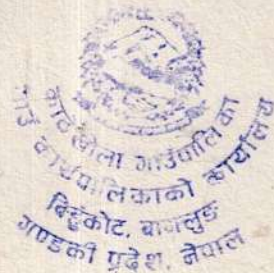 काठेखोला गाउँपालिका
गाउँ कार्यपालिकाको कार्यालय
बिहुंकोट, बागलुङ
गण्डकी प्रदेश, नेपाल